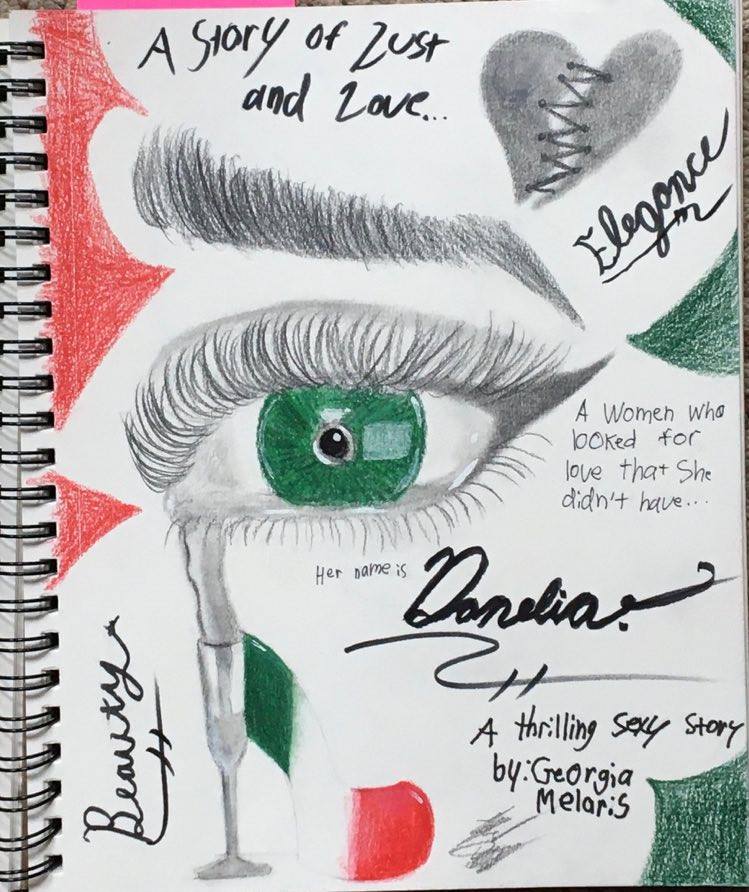 A Story of Lust
and Love...
Elegance
A Women who
looked for
love that She
didn't have...
Her name is
Danelia.
Beauty
A thrilling Sexy Story
by: Georgia
Melaris